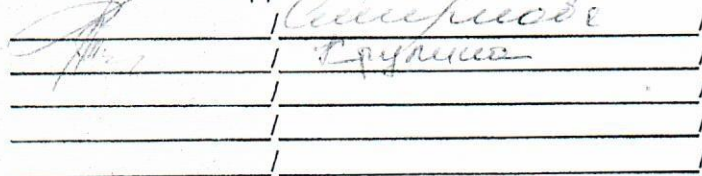 / Смирнова /
/ Крупина /
/ /
/ /
/ /